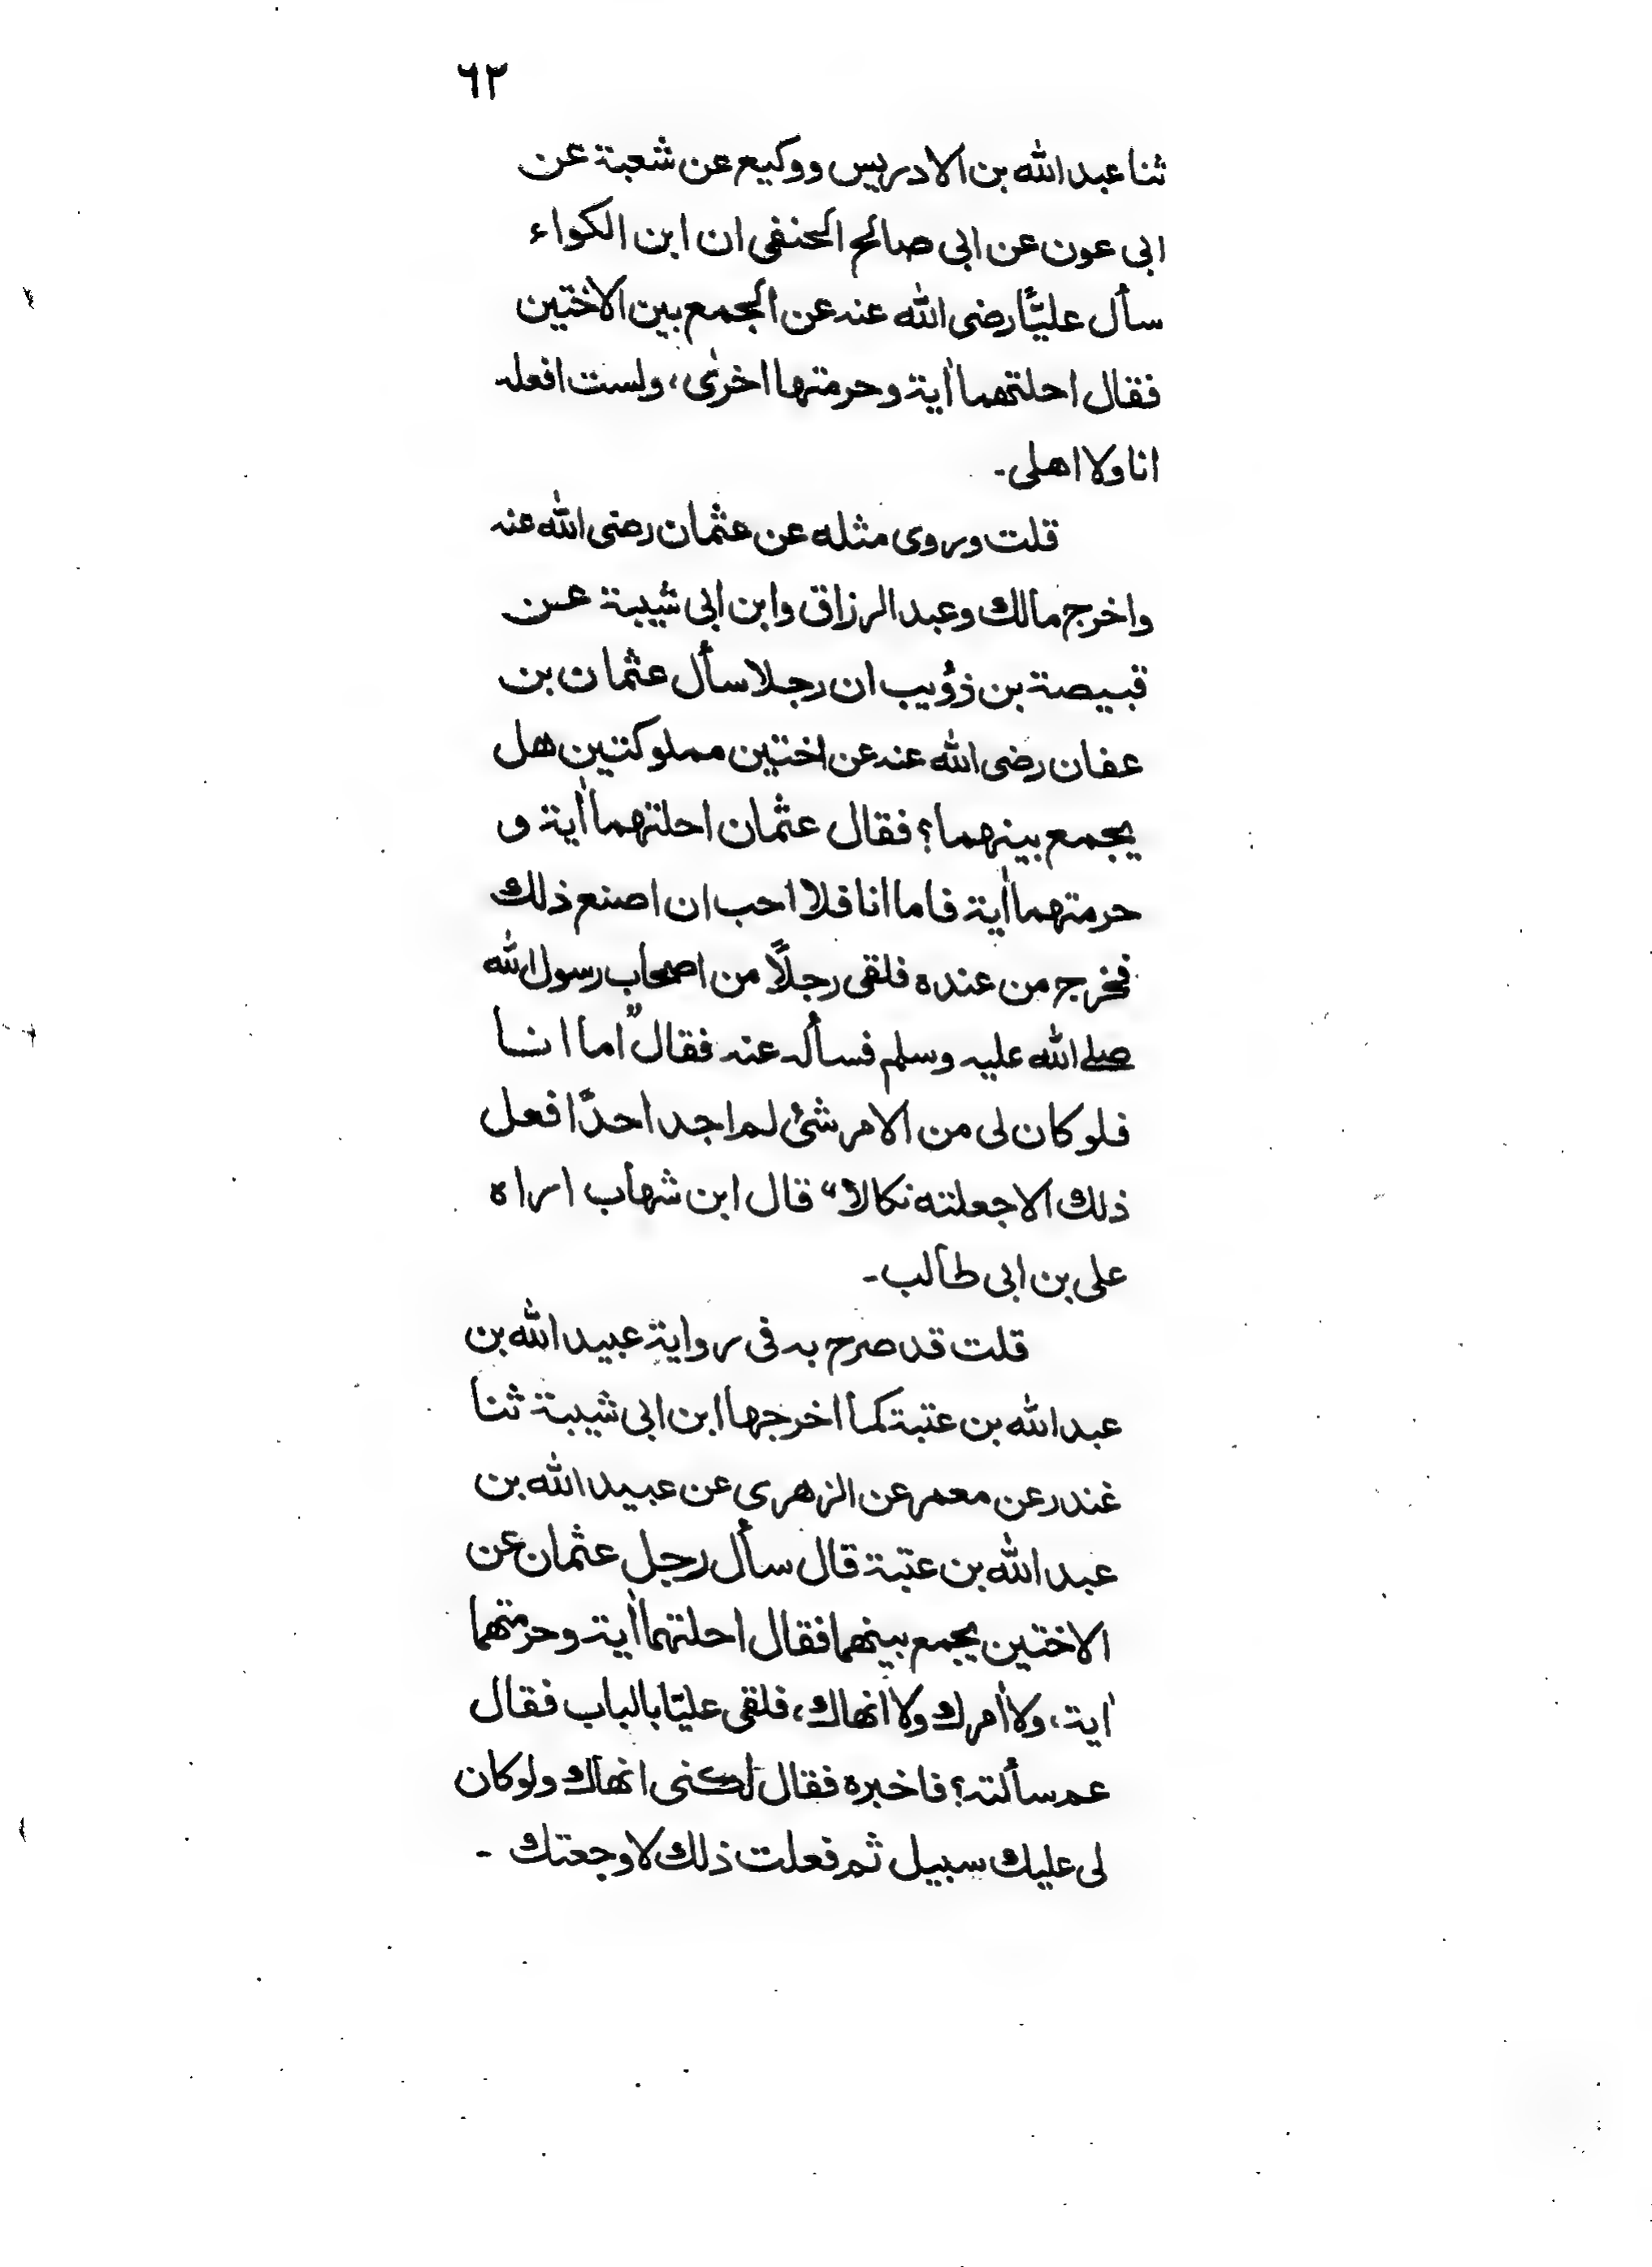 ٦٢
ثنا عبد الله بن الادريس ووكيع عن شعبة عن
ابى عون عن ابى صالح الحنفى ان ابن الكواء
سأل عليًّا رضى الله عنه عن الجمع بين الاختين
فقال احلتهما اٰية وحرمتها اخرٰى، ولست افعله
انا ولا اهلى۔
قلت وروى مثله عن عثمان رضى الله عنه
واخرج مالك وعبد الرزاق وابن ابى شيبة عن
قبيصة بن ذؤيب ان رجلا سأل عثمان بن
عفان رضى الله عنه عن اختين مملوكتين هل
يجمع بينهما؟ فقال عثمان احلتهما اٰية و
حرمتهما اٰية فاما انا فلا احب ان اصنع ذلك
فخرج من عنده فلقى رجلًا من اصحاب رسول الله
صلے الله عليه وسلم فسأله عنه فقال "اما انا
فلو كان لى من الامر شئ لم اجد احدًا فعل
ذلك الا جعلته نكالا" قال ابن شهاب اراه
على بن ابى طالب۔
قلت قد صرح به فى رواية عبيد الله بن
عبد الله بن عتبة كما اخرجها ابن ابى شيبة ثنا
غندر عن معمر عن الزهرى عن عبيد الله بن
عبد الله بن عتبة قال سأل رجل عثمان عن
الاختين يجمع بينهما فقال احلتهما اٰية وحرمتهما
اٰية، ولا اٰمرك ولا انهاك، فلقى عليّا بالباب فقال
عم سألته؟ فاخبره فقال لكنى انهاك ولو كان
لى عليك سبيل ثم فعلت ذلك لاوجعتك ۔